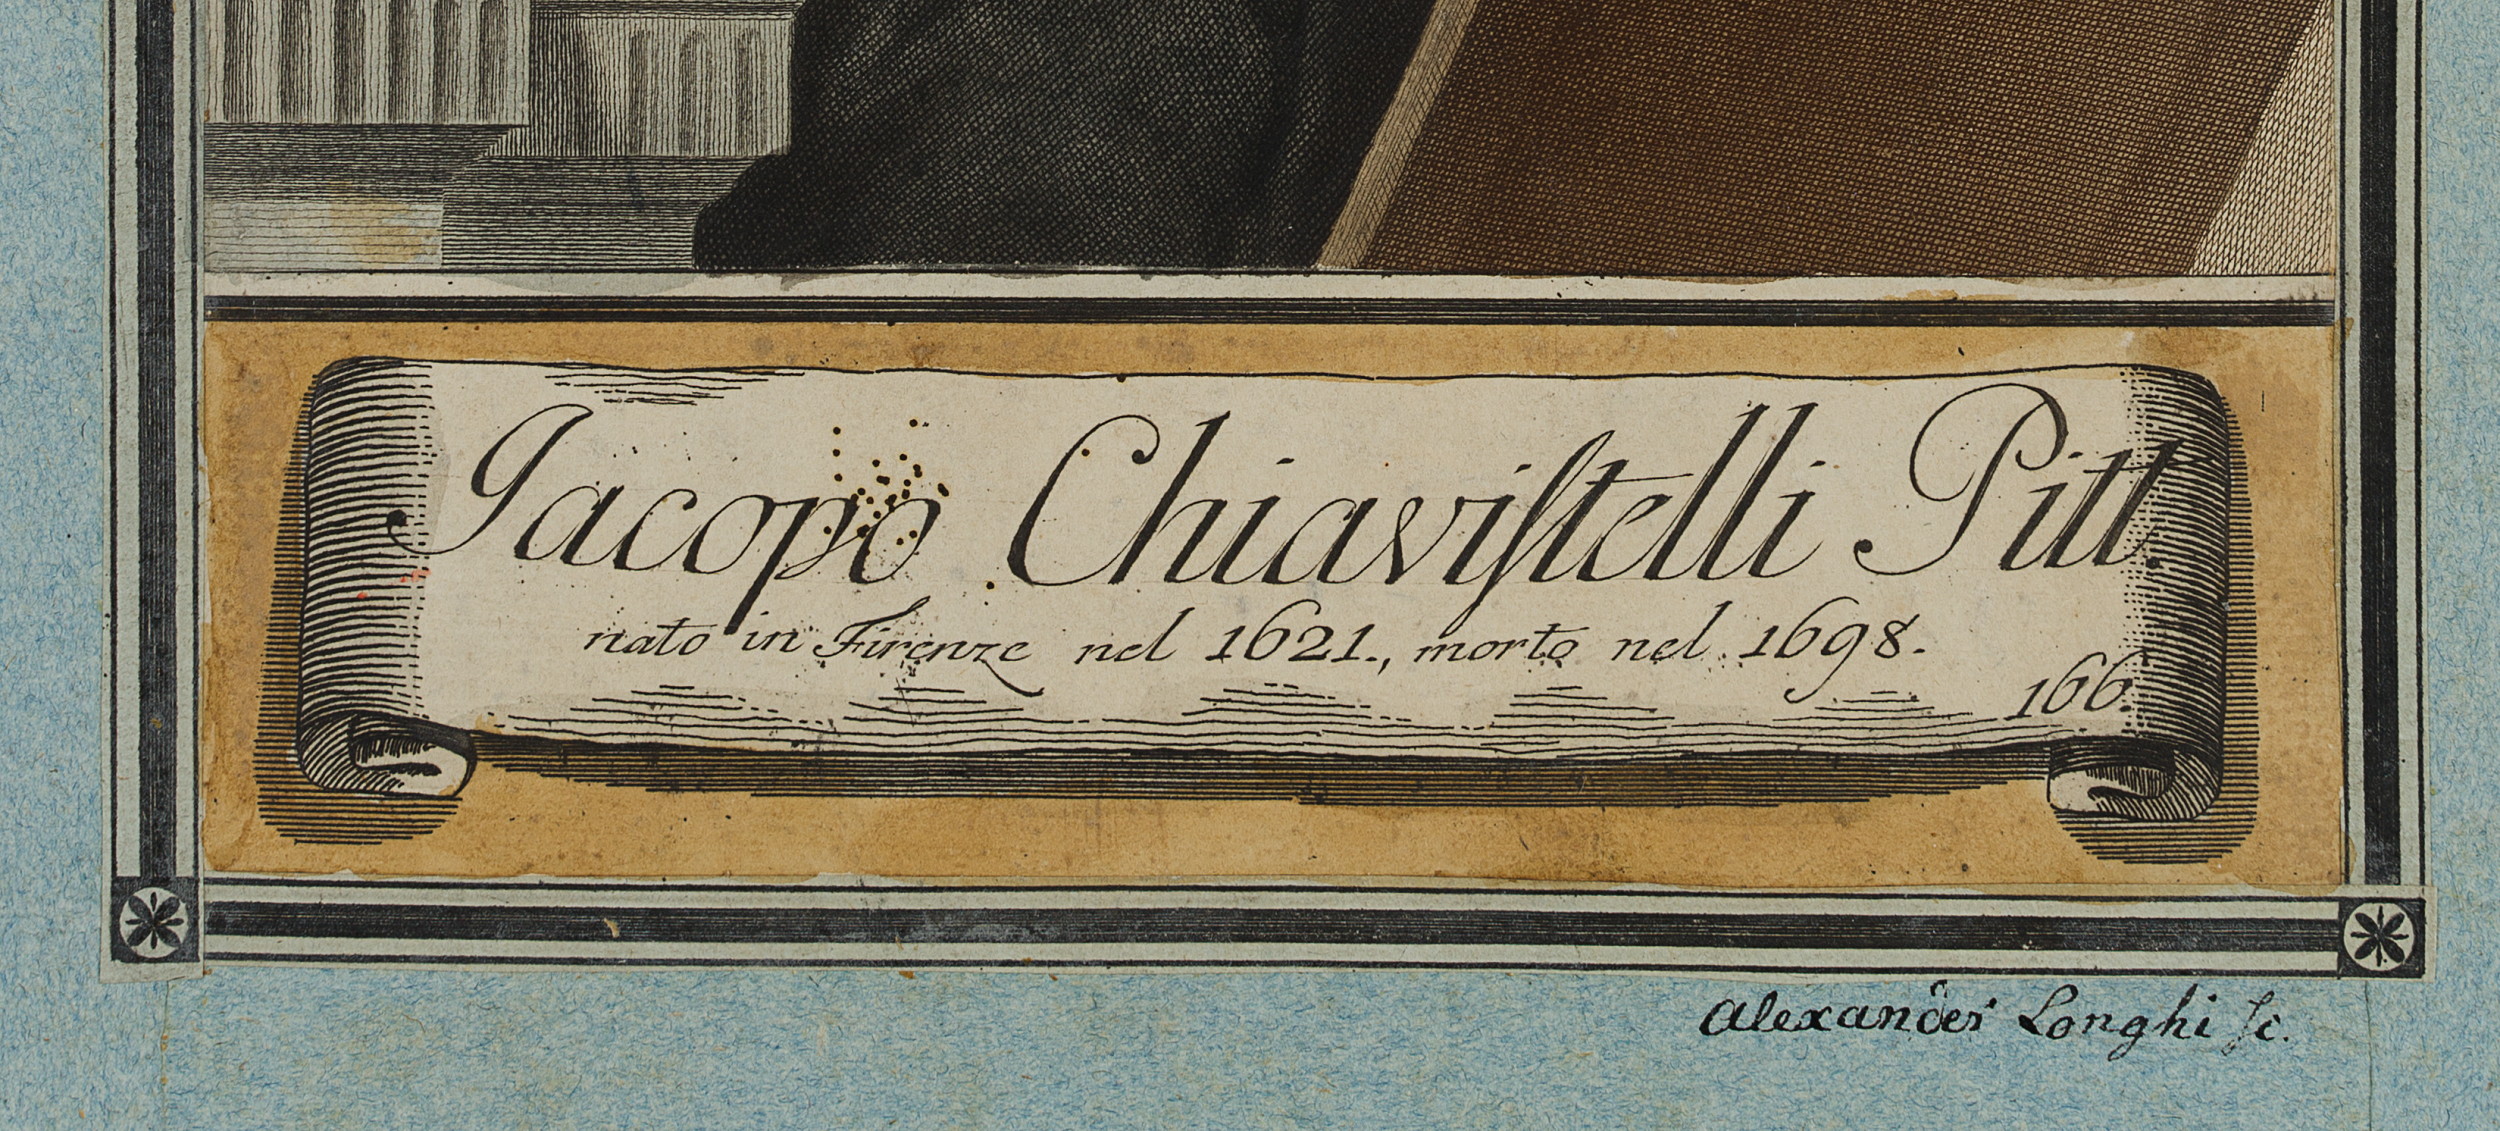 Jacopo Chiaviſtelli Pitt.
nato in Firenze nel 1621., morto nel 1698.
166.
Alexander Longhi ſc.